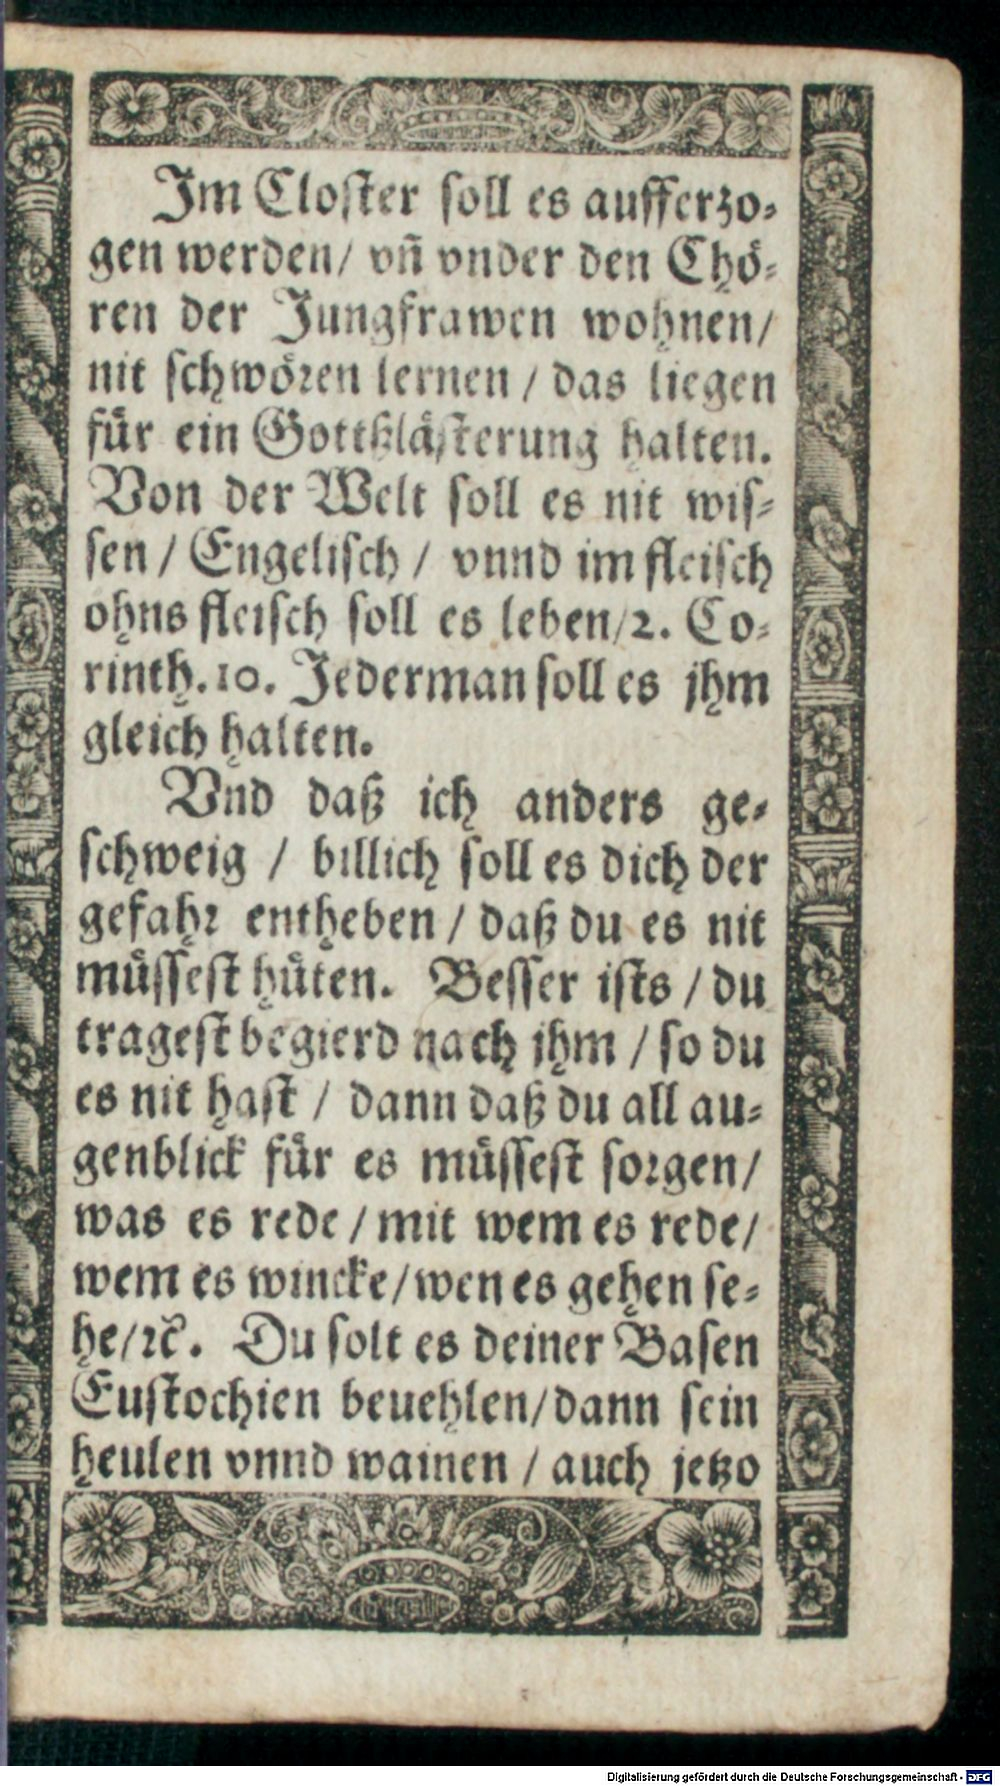 Im Closter soll es aufferzo-
gen werden/ vñ vnder den Chö-
ren der Jungfrawen wohnen/
nit schwören lernen / das liegen
für ein Gottßlästerung halten.
Von der Welt soll es nit wis-
sen / Engelisch / vnnd im fleisch
ohns fleisch soll es leben/2. Co-
rinth.10. Jederman soll es jhm
gleich halten.
Vnd daß ich anders ge-
schweig / billich soll es dich der
gefahr entheben / daß du es nit
müssest hüten. Besser ists / du
tragest begierd nach jhm / so du
es nit hast / dann daß du all au-
genblick für es müssest sorgen/
was es rede / mit wem es rede/
wem es wincke/wen es gehen se-
he/ꝛc̃. Du solt es deiner Basen
Eustochien beuehlen/dann sein
heulen vnnd wainen / auch jetzo
Digitalisierung gefördert durch die Deutsche Forschungsgemeinschaft - DFG